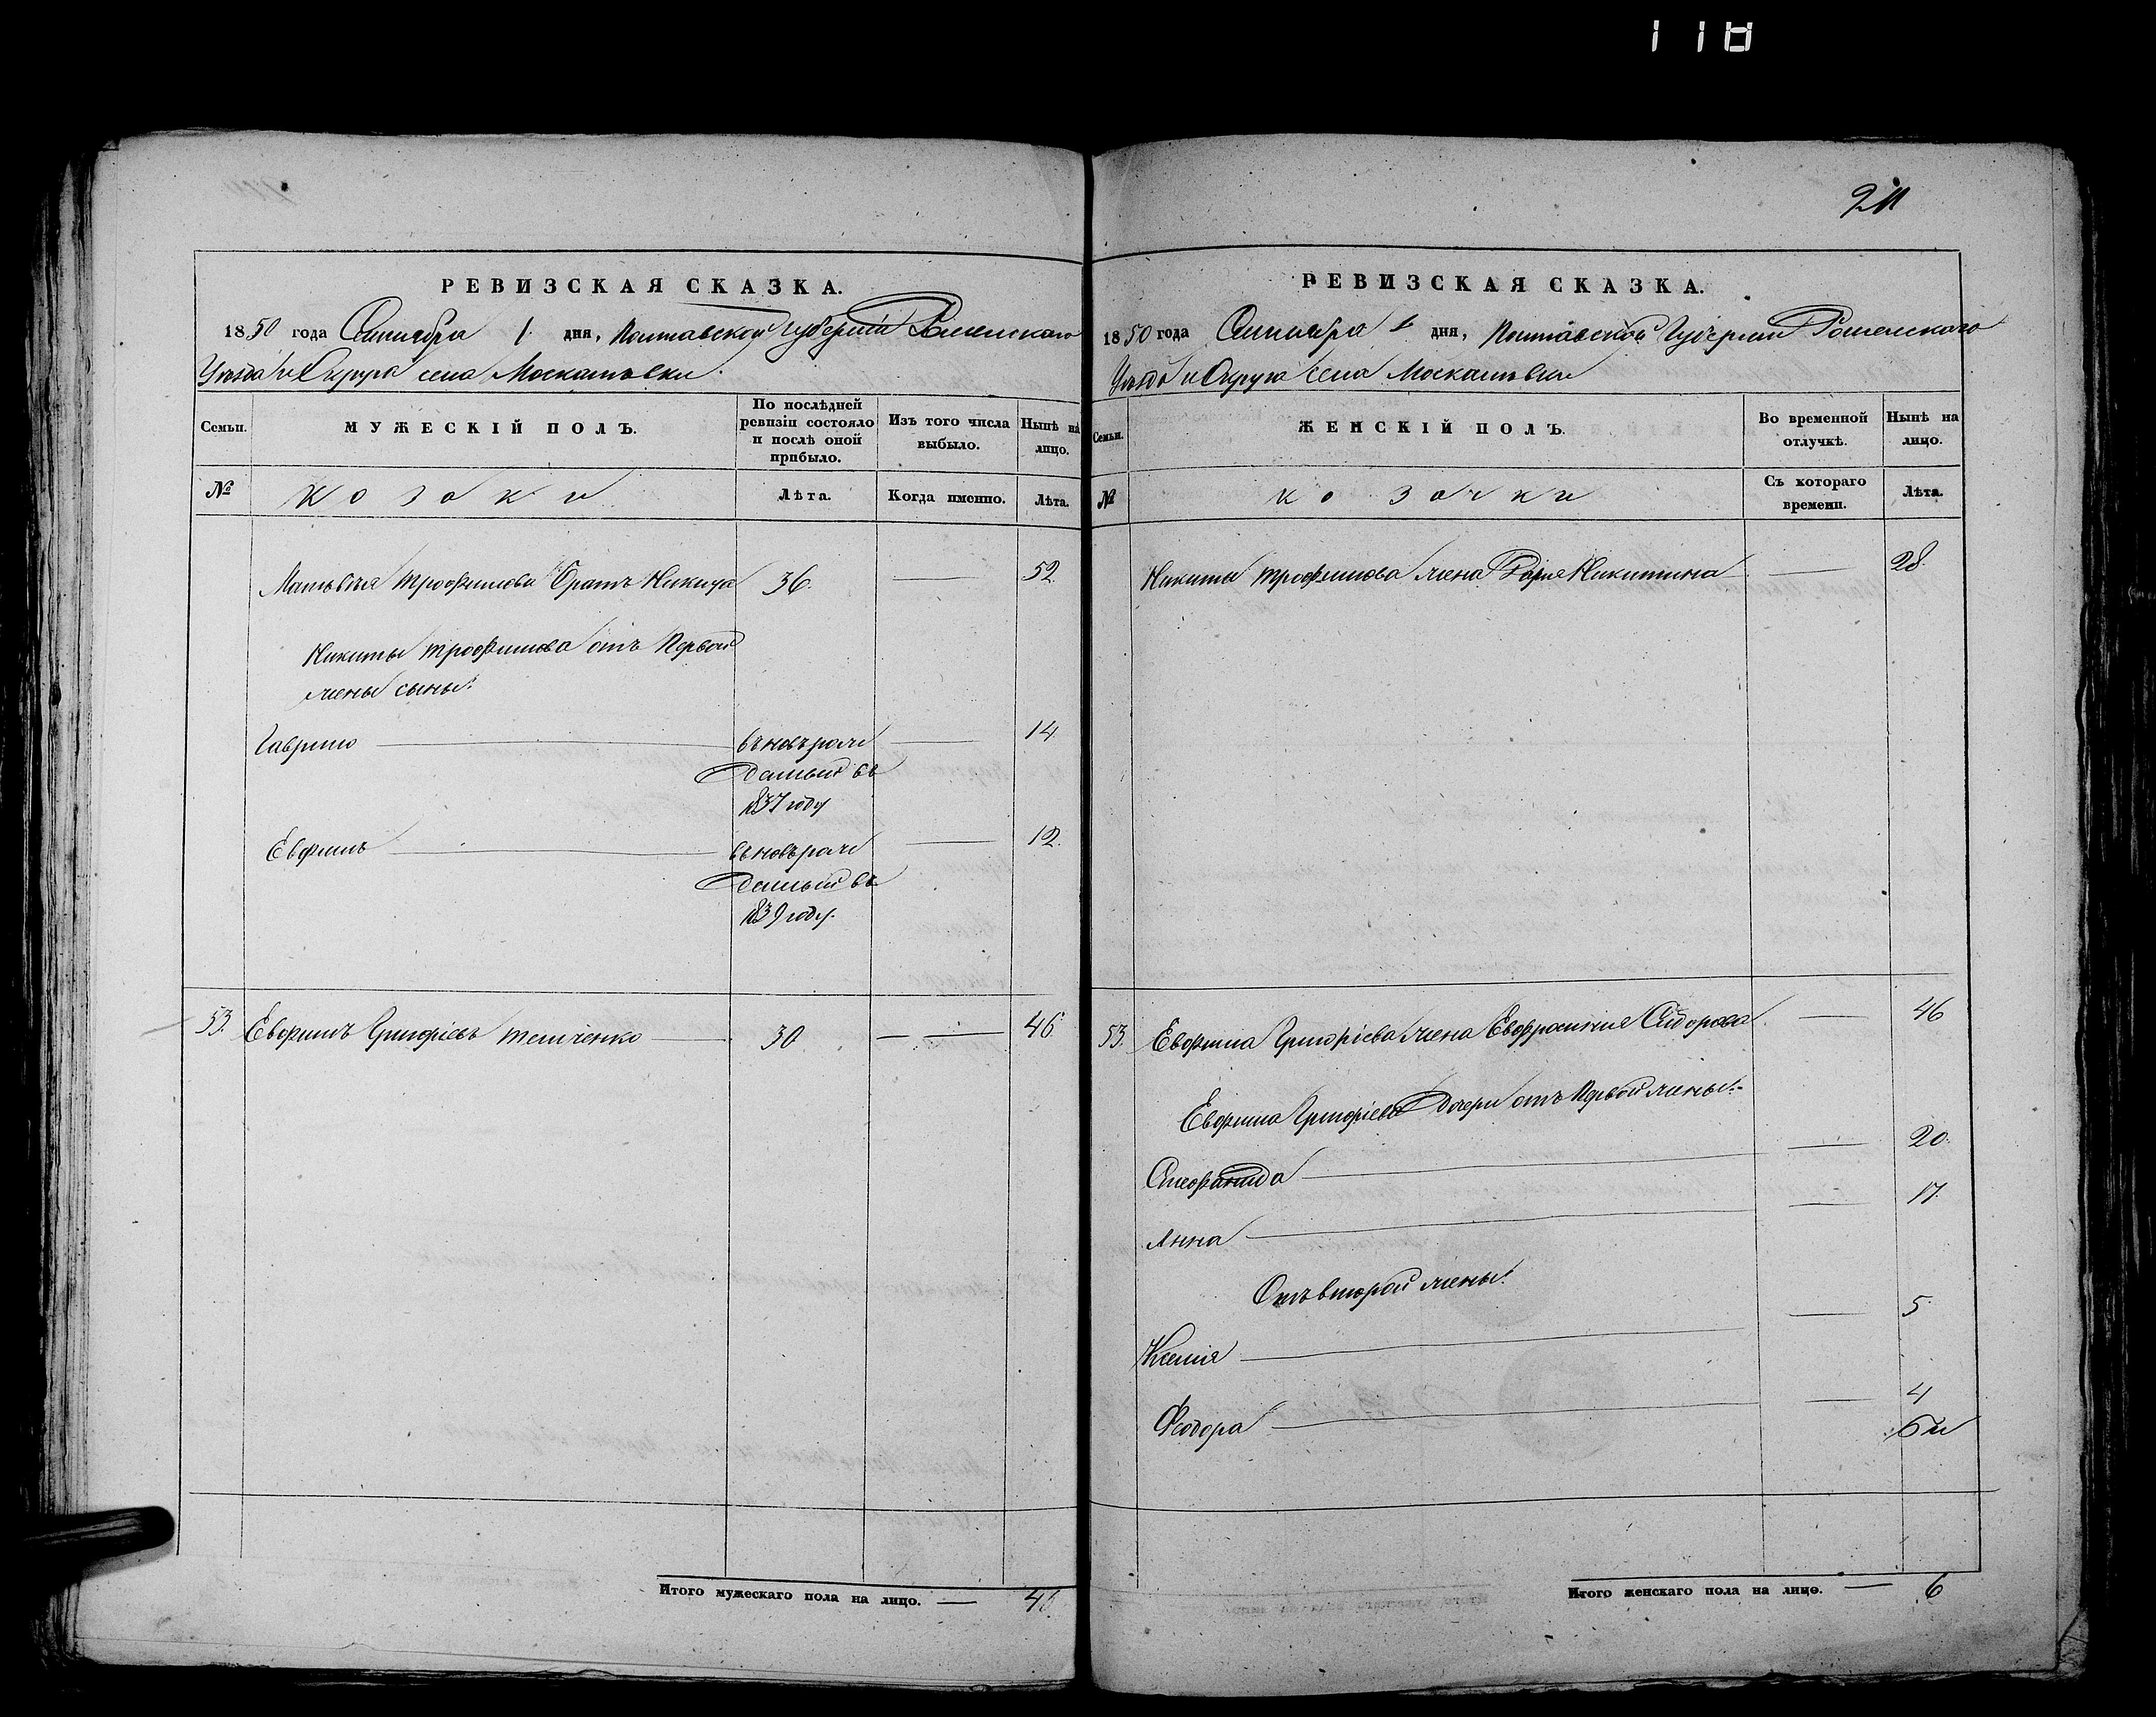 118
211
РЕВИЗСКАЯ СКАЗКА.
1850 года Сентября 1 дня, Полтавской губерніи Роменскаго
Уѣзда и Округа села Москалевки
Семьи.
МУЖЕСКІЙ ПОЛЪ.
По послѣдней ревизіи состояло и послѣ оной прибыло.
Изъ того числа выбыло.
Нынѣ на лицо.
№
Козаки
Лѣта.
Когда именно.
Лѣта.
Матвѣя Трофимова Братъ Никита 36. — 52
Никиты Трофимова отъ Первой
жены сыны:
Гаврило — вновь рож — 14
денный въ
1837 году
Евфимъ — вновь рож — 12.
денный въ
1839 году.
53. Евфимъ Григорьевъ — 30 — 46
Итого мужескаго пола на лицо. — 4
РЕВИЗСКАЯ СКАЗКА.
1850 года Сентября 1 дня, Полтавской Губерніи Роменского
Уѣзда и Округа села Москалевки
Семьи.
ЖЕНСКІЙ ПОЛЪ.
Во временной отлучкѣ.
Нынѣ на лицо.
№
козачки
Съ котораго времени.
Лѣта.
Никиты Трофимова жена Дарія Никитина — 28
53. Евфима Григоріева жена Евфросинія Сидорова — 46
Евфима Григоріева Дочери отъ Первой жены:
Степанида — 20.
Анна — 17.
Отъ второй жены:
Ксенія — 5
Феодора — 4
Итого женскаго пола на лицо. — 6